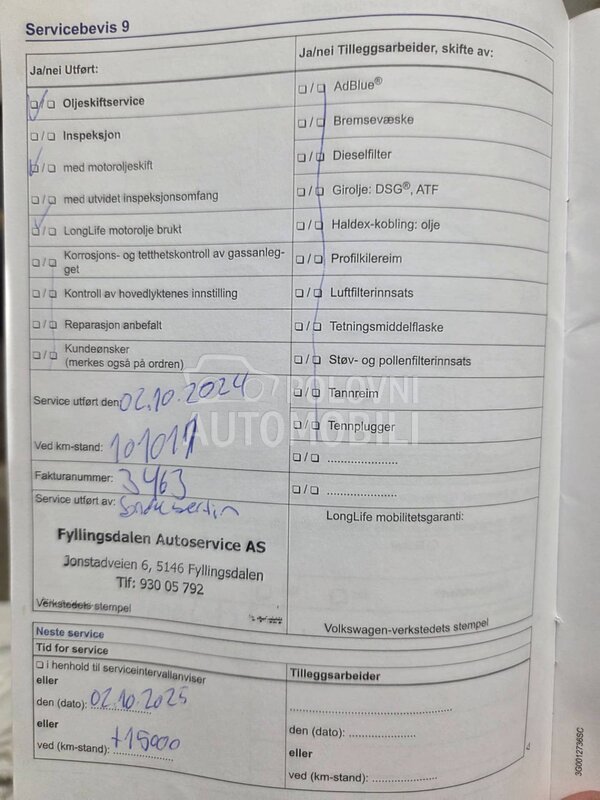 Servicebevis 9
Ja/nei Utført:
Oljeskiftservice
Inspeksjon
med motoroljeskift
med utvidet inspeksjonsomfang
LongLife motorolje brukt
Korrosjons- og tetthetskontroll av gassanleg-
get
Kontroll av hovedlyktenes innstilling
Reparasjon anbefalt
Kundeønsker
(merkes også på ordren)
Service utført den: 02.10.2024
Ved km-stand: 101017
Fakturanummer: 3463
Service utført av:
Fyllingsdalen Autoservice AS
Jonstadveien 6, 5146 Fyllingsdalen
Tlf: 930 05 792
Verkstedets stempel
Ja/nei Tilleggsarbeider, skifte av:
AdBlue®
Bremsevæske
Dieselfilter
Girolje: DSG®, ATF
Haldex-kobling: olje
Profilkilereim
Luftfilterinnsats
Tetningsmiddelflaske
Støv- og pollenfilterinnsats
Tannreim
Tennplugger
LongLife mobilitetsgaranti:
Volkswagen-verkstedets stempel
Neste service
Tid for service
i henhold til serviceintervallanviser
eller
den (dato): 02.10.2025
eller
ved (km-stand): +15000
Tilleggsarbeider
den (dato):
eller
ved (km-stand):
3G0012736SC
POLOVNI
AUTOMOBILI